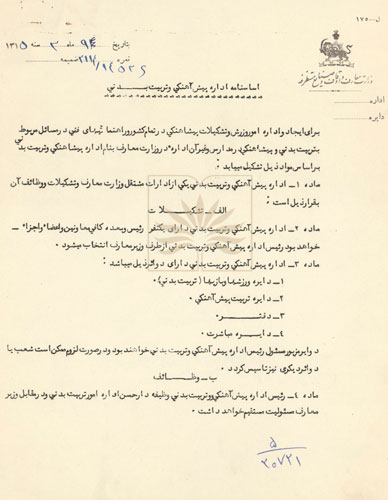 ل — ۱۷۵۰
وزارت معارف و اوقاف و صنایع مستظرفه
اداره
دایره
بتاریخ ۹۴ ماه ۳ سنه ۱۳۱۵
نمره
ضمیمه
اساسنامه اداره پیش آهنگی و تربیت بدنی
برای ایجاد و اداره امور ورزش و تشکیلات پیشاهنگی در تمام کشور و راهنمائیهای فنی در مسائل مربوط
بتربیت بدنی و پیشاهنگی در مدارس و غیر آن اداره ئی در وزارت معارف بنام اداره پیشاهنگی و تربیت بدنی
بر اساس مواد ذیل تشکیل میباید :
ماده ۱ــ اداره پیش آهنگی و تربیت بدنی یکی از ادارات مستقل وزارت معارف و تشکیلات و وظائف آن
بقرار ذیل است :
الف ــ تشکیلات
ماده ۲ــ اداره پیش آهنگی و تربیت بدنی دارای یکنفر رئیس و بعده کافی معاونین و اعضاء و اجزاء ــ
خواهد بود رئیس اداره پیش آهنگی و تربیت بدنی از طرف وزیر معارف انتخاب میشود .
ماده ۳ــ اداره پیش آهنگی و تربیت بدنی دارای دوائر ذیل میباشد :
۱ــ دایره ورزشها و بازیها ( تربیت بدنی ) .
۲ــ دایره تربیت پیش آهنگی .
۳ــ دفتر .
۴ــ دایره مباشرت .
دوایر مزبور مسئول رئیس اداره پیش آهنگی و تربیت بدنی خواهند بود و در صورت لزوم ممکن است شعب یا
دوائر دیگری نیز تاسیس گردد .
ب ــ وظائف
ماده ۴ــ رئیس اداره پیش آهنگی و تربیت بدنی وظیفه دار حسن اداره امور تربیت بدنی و در مقابل وزیر
معارف مسئولیت مستقیم خواهد داشت .
۵
۲۰۷۲۱